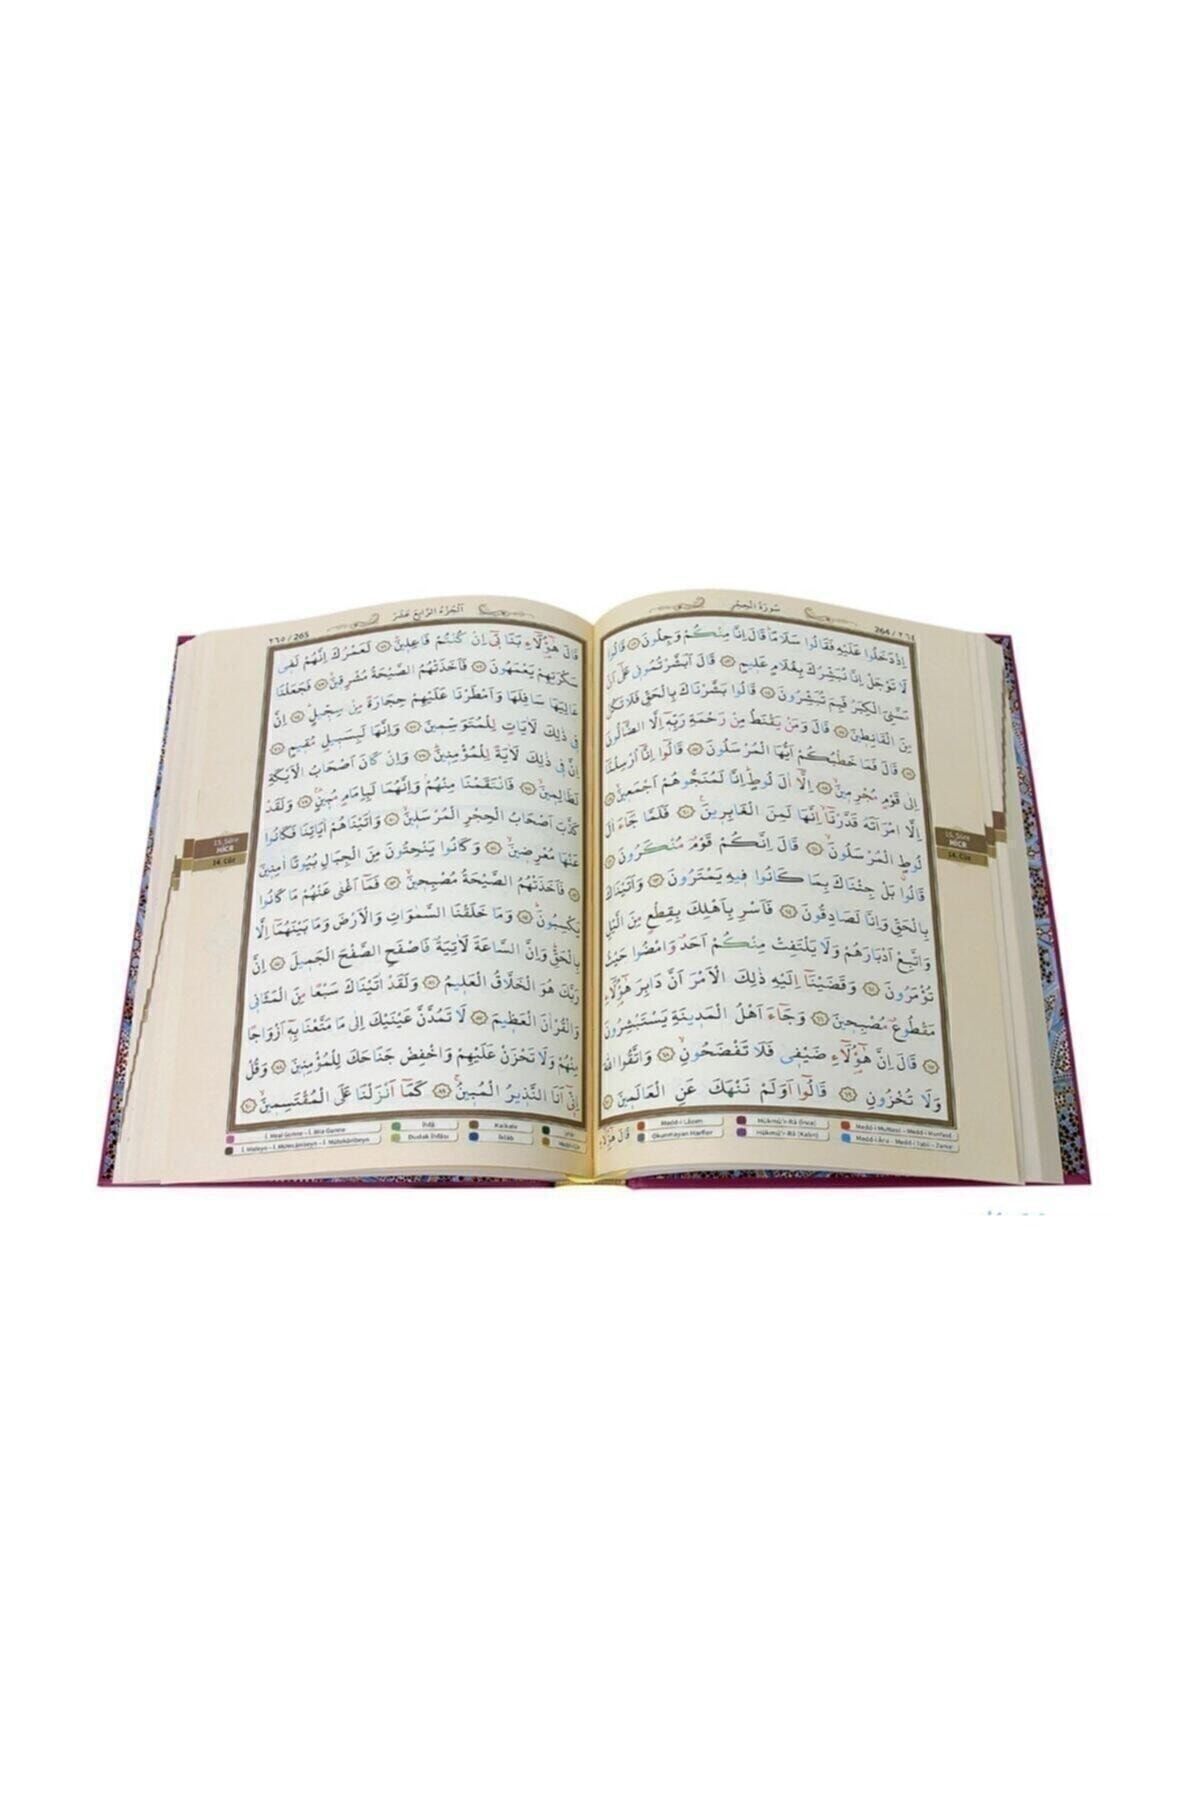 264 / ٢٦٤
سُورَةُ الْحِجْرِ
اِذْ دَخَلُوا عَلَيْهِ فَقَالُوا سَلَامًا قَالَ اِنَّا مِنْكُمْ وَجِلُونَ ﴿٥٢﴾ قَالُوا
لَا تَوْجَلْ اِنَّا نُبَشِّرُكَ بِغُلَامٍ عَلِيمٍ ﴿٥٣﴾ قَالَ اَبَشَّرْتُمُونِي عَلٰٓى اَنْ
مَسَّنِيَ الْكِبَرُ فَبِمَ تُبَشِّرُونَ ﴿٥٤﴾ قَالُوا بَشَّرْنَاكَ بِالْحَقِّ فَلَا تَكُنْ
مِنَ الْقَانِطِينَ ﴿٥٥﴾ قَالَ وَمَنْ يَقْنَطُ مِنْ رَحْمَةِ رَبِّهٖٓ اِلَّا الضَّٓالُّونَ
﴿٥٦﴾ قَالَ فَمَا خَطْبُكُمْ اَيُّهَا الْمُرْسَلُونَ ﴿٥٧﴾ قَالُٓوا اِنَّٓا اُرْسِلْنَٓا
اِلٰى قَوْمٍ مُجْرِمِينَۙ ﴿٥٨﴾ اِلَّٓا اٰلَ لُوطٍۜ اِنَّا لَمُنَجُّوهُمْ اَجْمَعِينَۙ ﴿٥٩﴾
اِلَّا امْرَاَتَهُ قَدَّرْنَٓاۙ اِنَّهَا لَمِنَ الْغَابِرِينَ۟ ﴿٦٠﴾ فَلَمَّا جَٓاءَ اٰلَ
لُوطٍ الْمُرْسَلُونَۙ ﴿٦١﴾ قَالَ اِنَّكُمْ قَوْمٌ مُنْكَرُونَ ﴿٦٢﴾
قَالُوا بَلْ جِئْنَاكَ بِمَا كَانُوا فِيهِ يَمْتَرُونَ ﴿٦٣﴾ وَاَتَيْنَاكَ
بِالْحَقِّ وَاِنَّا لَصَادِقُونَ ﴿٦٤﴾ فَاَسْرِ بِاَهْلِكَ بِقِطْعٍ مِنَ الَّيْلِ
وَاتَّبِعْ اَدْبَارَهُمْ وَلَا يَلْتَفِتْ مِنْكُمْ اَحَدٌ وَامْضُوا حَيْثُ
تُؤْمَرُونَ ﴿٦٥﴾ وَقَضَيْنَٓا اِلَيْهِ ذٰلِكَ الْاَمْرَ اَنَّ دَابِرَ هٰٓؤُ۬لَٓاءِ
مَقْطُوعٌ مُصْبِحِينَ ﴿٦٦﴾ وَجَٓاءَ اَهْلُ الْمَدِينَةِ يَسْتَبْشِرُونَ
﴿٦٧﴾ قَالَ اِنَّ هٰٓؤُ۬لَٓاءِ ضَيْفِي فَلَا تَفْضَحُونِۙ ﴿٦٨﴾ وَاتَّقُوا اللّٰهَ
وَلَا تُخْزُونِ ﴿٦٩﴾ قَالُٓوا اَوَلَمْ نَنْهَكَ عَنِ الْعَالَمِينَ ﴿٧٠﴾
قَالَ هٰٓؤُ۬لَٓاءِ
Medd-i Lâzım
Hükmü'r-Râ (İnce)
Medd-i Muttasıl - Medd-i Munfasıl
Okunmayan Harfler
Hükmü'r-Râ (Kalın)
15. Sûre
HİCR
14. Cüz
اَلْجُزْءُ الرَّابِعَ عَشَرَ
٢٦٥ / 265
قَالَ هٰٓؤُ۬لَٓاءِ بَنَاتِٓي اِنْ كُنْتُمْ فَاعِلِينَۜ ﴿٧١﴾ لَعَمْرُكَ اِنَّهُمْ لَفِي
سَكْرَتِهِمْ يَعْمَهُونَ ﴿٧٢﴾ فَاَخَذَتْهُمُ الصَّيْحَةُ مُشْرِقِينَۙ ﴿٧٣﴾ فَجَعَلْنَا
عَالِيَهَا سَافِلَهَا وَاَمْطَرْنَا عَلَيْهِمْ حِجَارَةً مِنْ سِجِّيلٍۜ ﴿٧٤﴾ اِنَّ
فِي ذٰلِكَ لَاٰيَاتٍ لِلْمُتَوَسِّمِينَ ﴿٧٥﴾ وَاِنَّهَا لَبِسَبِيلٍ مُقِيمٍ ﴿٧٦﴾
اِنَّ فِي ذٰلِكَ لَاٰيَةً لِلْمُؤْمِنِينَۜ ﴿٧٧﴾ وَاِنْ كَانَ اَصْحَابُ الْاَيْكَةِ
لَظَالِمِينَۙ ﴿٧٨﴾ فَانْتَقَمْنَا مِنْهُمْۢ وَاِنَّهُمَا لَبِاِمَامٍ مُبِينٍ۟ ﴿٧٩﴾ وَلَقَدْ
كَذَّبَ اَصْحَابُ الْحِجْرِ الْمُرْسَلِينَۙ ﴿٨٠﴾ وَاٰتَيْنَاهُمْ اٰيَاتِنَا فَكَانُوا
عَنْهَا مُعْرِضِينَۙ ﴿٨١﴾ وَكَانُوا يَنْحِتُونَ مِنَ الْجِبَالِ بُيُوتًا اٰمِنِينَ
﴿٨٢﴾ فَاَخَذَتْهُمُ الصَّيْحَةُ مُصْبِحِينَۙ ﴿٨٣﴾ فَمَٓا اَغْنٰى عَنْهُمْ مَا كَانُوا
يَكْسِبُونَۜ ﴿٨٤﴾ وَمَا خَلَقْنَا السَّمٰوَاتِ وَالْاَرْضَ وَمَا بَيْنَهُمَٓا اِلَّا
بِالْحَقِّۜ وَاِنَّ السَّاعَةَ لَاٰتِيَةٌ فَاصْفَحِ الصَّفْحَ الْجَمِيلَ ﴿٨٥﴾ اِنَّ
رَبَّكَ هُوَ الْخَلَّاقُ الْعَلِيمُ ﴿٨٦﴾ وَلَقَدْ اٰتَيْنَاكَ سَبْعًا مِنَ الْمَثَانِي
وَالْقُرْاٰنَ الْعَظِيمَ ﴿٨٧﴾ لَا تَمُدَّنَّ عَيْنَيْكَ اِلٰى مَا مَتَّعْنَا بِهٖٓ اَزْوَاجًا
مِنْهُمْ وَلَا تَحْزَنْ عَلَيْهِمْ وَاخْفِضْ جَنَاحَكَ لِلْمُؤْمِنِينَ ﴿٨٨﴾ وَقُلْ
اِنِّٓي اَنَا النَّذِيرُ الْمُبِينُۚ ﴿٨٩﴾ كَمَٓا اَنْزَلْنَا عَلَى الْمُقْتَسِمِينَۙ ﴿٩٠﴾
İ. Meal Gunne - İ. Bila Gunne
İhfâ
Kalkale
İ. Misleyn - İ. Mütecâniseyn - İ. Mütekâribeyn
Dudak İhfâsı
İklâb
15. Sûre
HİCR
14. Cüz